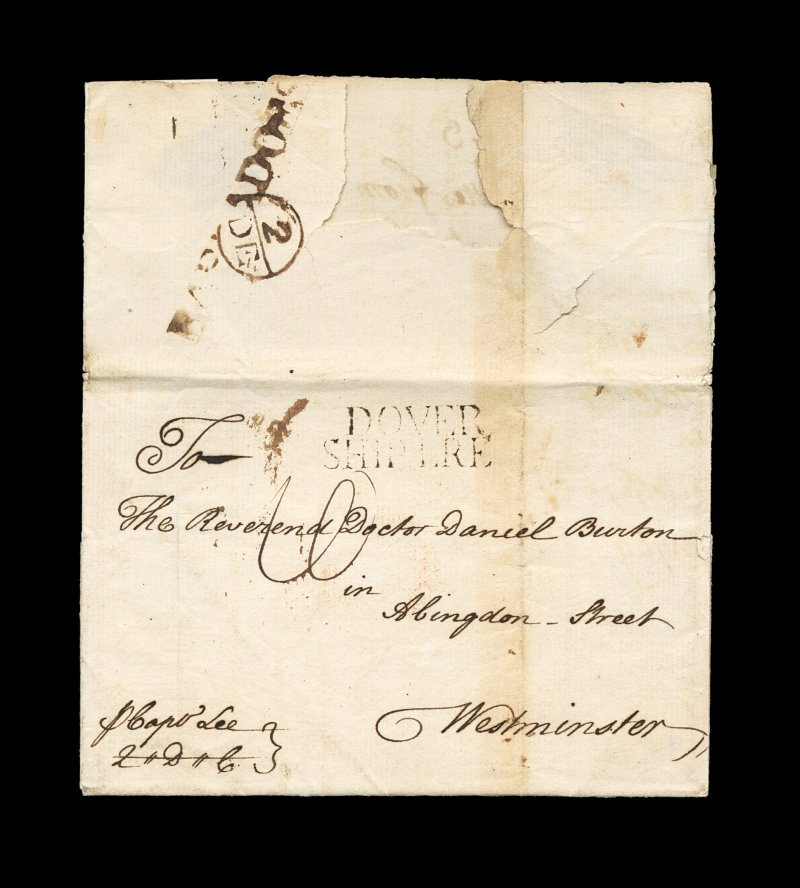 2
DE
DOVER
SHIP LRE
To
The Reverend Doctor Daniel Burton
in
Abingdon - Street
Westminster
Lee
2 " D " C